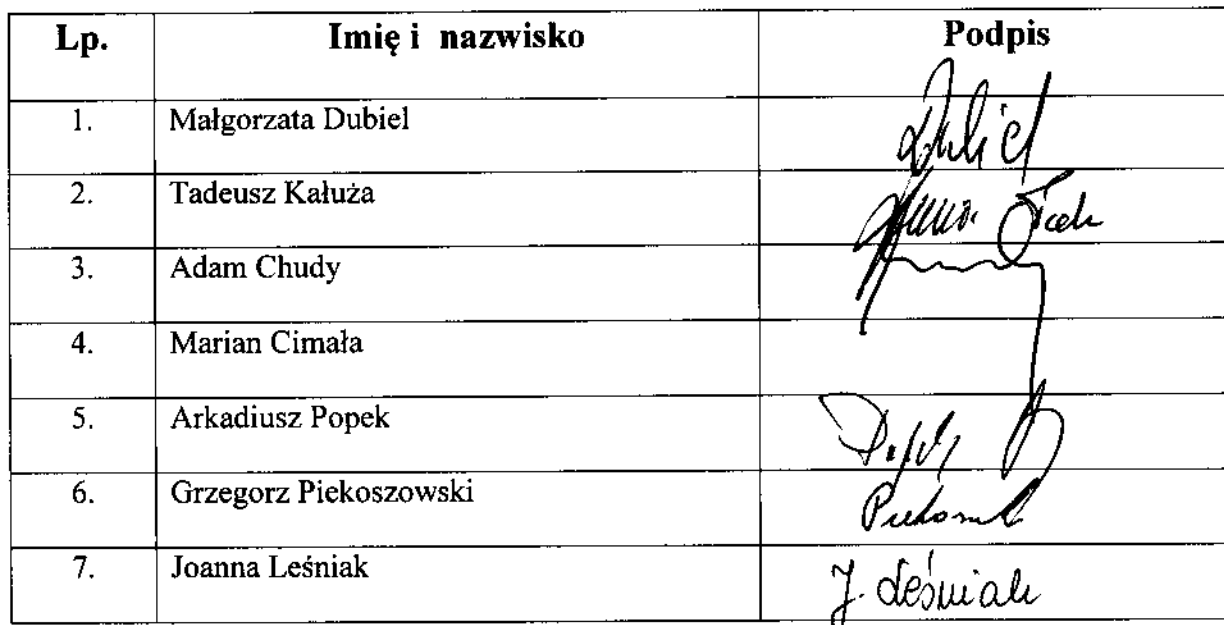 Lp. Imię i nazwisko Podpis
1. Małgorzata Dubiel
2. Tadeusz Kałuża
3. Adam Chudy
4. Marian Cimała
5. Arkadiusz Popek
6. Grzegorz Piekoszowski
7. Joanna Leśniak J. Leśniak